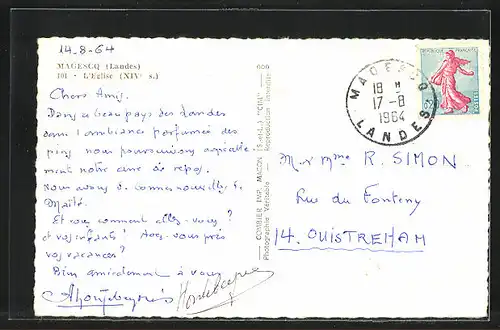 14-8-64
MAGESCQ (Landes)
101 - L'Eglise (XIVe s.)
Chers Amis.
Dans ce beau pays des Landes
dans l'ambiance parfumée des
pins nous poursuivons agréable
ment notre cure de repos.
Nous avons de bonnes nouvelles de
Maïté.
Et vous comment allez-vous ?
et vos enfants ? Avez-vous pris
vos vacances ?
Bien amicalement à vous
COMBIER IMP. MACON (S.-et-L.) "CIM"
Photographie Véritable - Reproduction interdite
REPUBLIQUE FRANÇAISE
POSTES
MAGESCQ
18 H
17-8
1964
LANDES
Mr et Mme R. SIMON
Rue du
14. OUISTREHAM